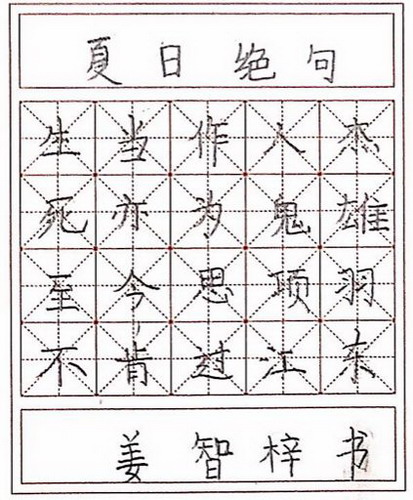 夏日绝句
生当作人杰
死亦为鬼雄
至今思项羽
不肯过江东
姜智梓书